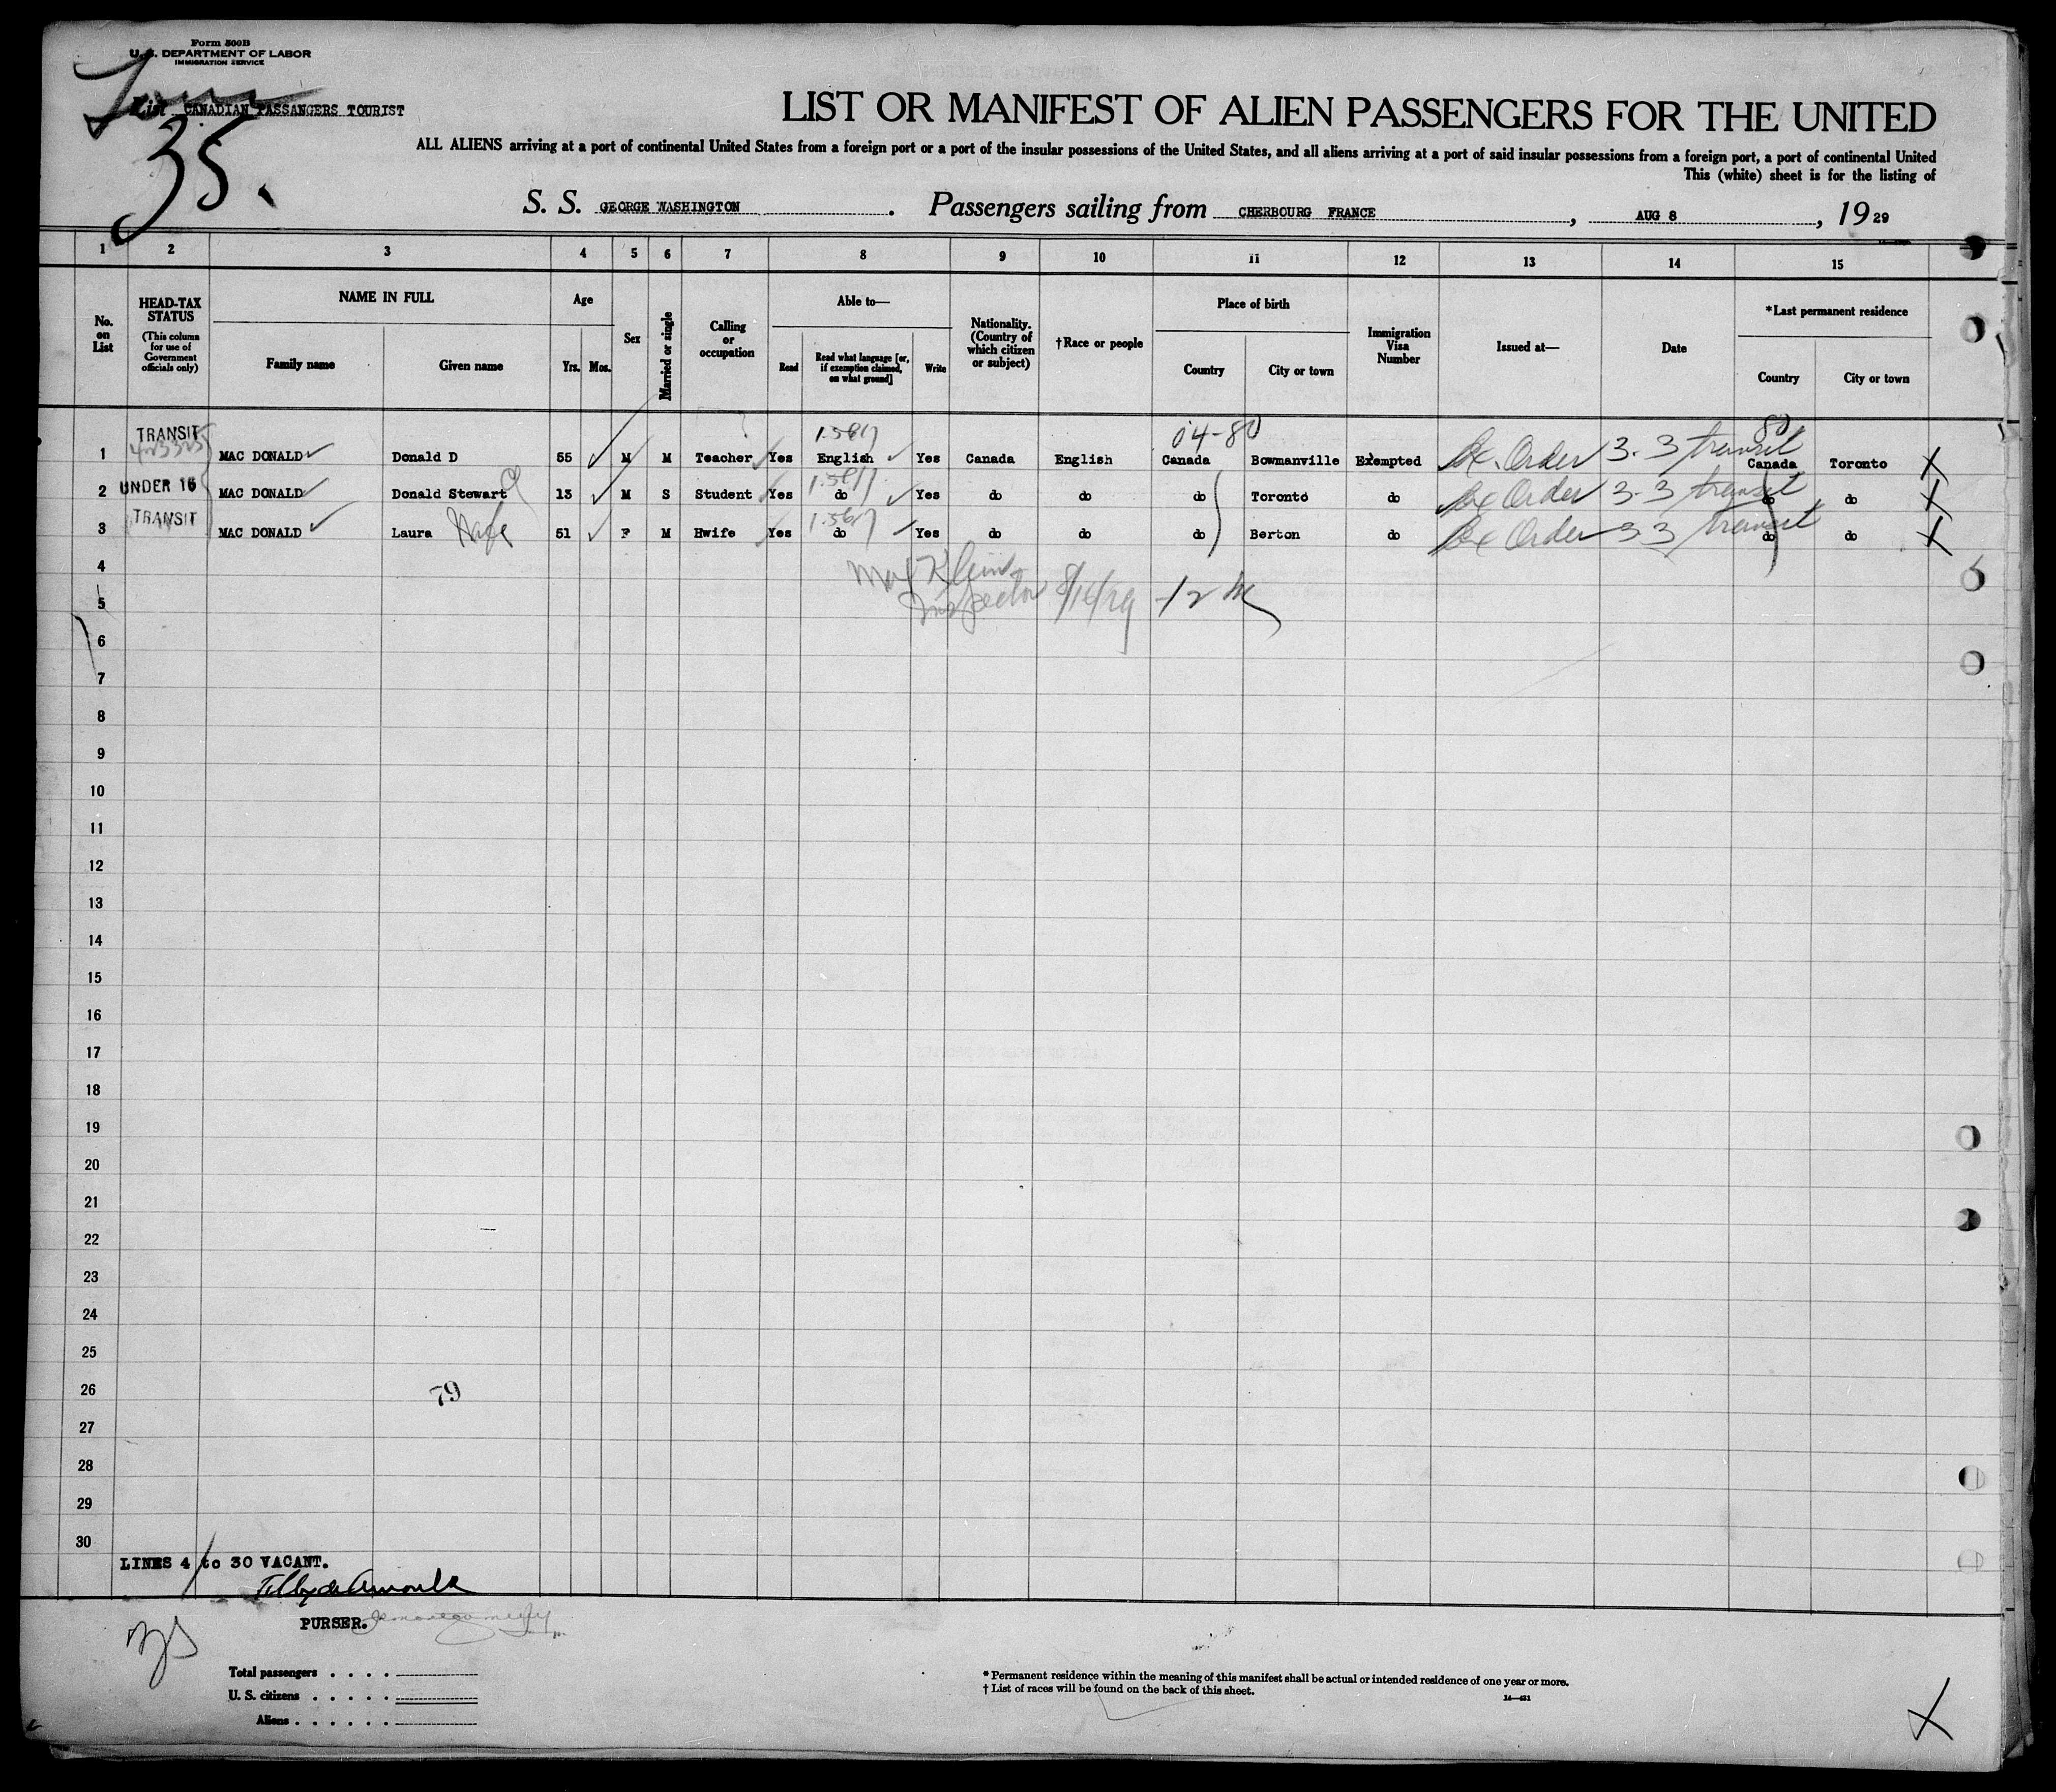 Form 500B
U. S. DEPARTMENT OF LABOR
IMMIGRATION SERVICE
List CANADIAN PASSANGERS TOURIST
35.
LIST OR MANIFEST OF ALIEN PASSENGERS FOR THE UNITED
ALL ALIENS arriving at a port of continental United States from a foreign port or a port of the insular possessions of the United States, and all aliens arriving at a port of said insular possessions from a foreign port, a port of continental United
This (white) sheet is for the listing of
S. S. GEORGE WASHINGTON . Passengers sailing from CHERBOURG FRANCE , AUG 8 , 19 29
1 2 3 4 5 6 7 8 9 10 11 12 13 14 15
No. on List
HEAD-TAX STATUS (This column for use of Government officials only)
NAME IN FULL
Family name Given name
Age
Yrs. Mos.
Sex
Married or single
Calling or occupation
Able to—
Read Read what language [or, if exemption claimed, on what ground] Write
Nationality. (Country of which citizen or subject)
†Race or people
Place of birth
Country City or town
Immigration Visa Number
Issued at—
Date
*Last permanent residence
Country City or town
TRANSIT 04-80 80
1 MAC DONALD Donald D 55 M M Teacher Yes English Yes Canada English Canada Bowmanville Exempted Ex. Order 3-3 transit Canada Toronto X
2 UNDER 16 MAC DONALD Donald Stewart 13 M S Student Yes do Yes do do do Toronto do Ex Order 3-3 transit do do X
TRANSIT
3 MAC DONALD Laura Wife 51 F M Hwife Yes do Yes do do do Berton do Ex Order 3 3 transit do do X
4 Max Klein
5 Inspector 8/16/29
6
7
8
9
10
11
12
13
14
15
16
17
18
19
20
21
22
23
24
25
26 79
27
28
29
30
LINES 4 to 30 VACANT.
PURSER.
Total passengers . . . .
U. S. citizens . . . . .
Aliens . . . . . .
* Permanent residence within the meaning of this manifest shall be actual or intended residence of one year or more.
† List of races will be found on the back of this sheet.
14—431
X